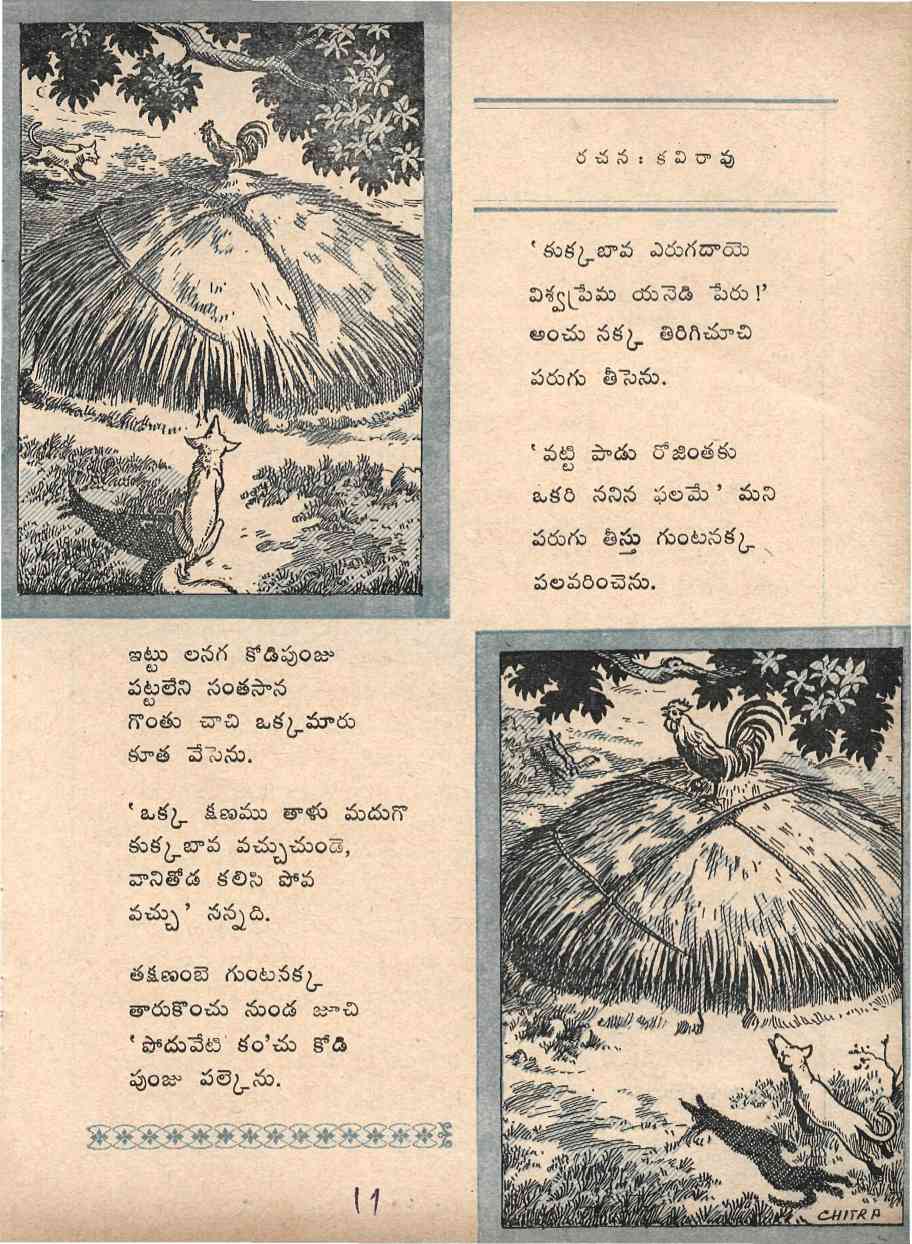 రచన : కవిరావు
ఇట్టు లనగ కోడిపుంజు
పట్టలేని సంతసాన
గొంతు చాచి ఒక్కమారు
కూత వేసెను.
' ఒక్క క్షణము తాళు మదుగొ
కుక్కబావ వచ్చుచుండె,
వానితోడ కలిసి పోవ
వచ్చు ' నన్నది.
తక్షణంబె గుంటనక్క
తారుకొంచు నుండ జూచి
' పోదువేటి కం'చు కోడి
పుంజు పల్కెను.
' కుక్కబావ ఎరుగదాయె
విశ్వప్రేమ యనెడి పేరు !'
అంచు నక్క తిరిగిచూచి
పరుగు తీసెను.
' వట్టి పాడు రోజింతకు
ఒకరి ననిన ఫలమే ' మని
పరుగు తీస్తు గుంటనక్క
పలవరించెను.
CHITRA
11